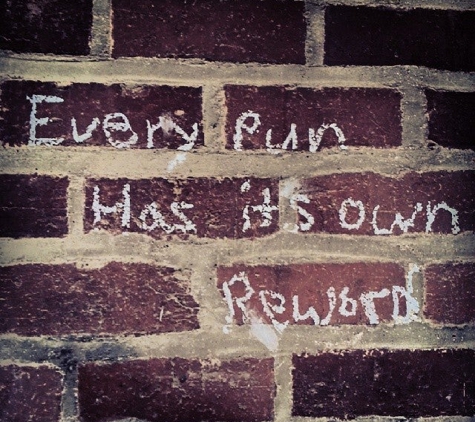 Every pun
Has it's own
Reword